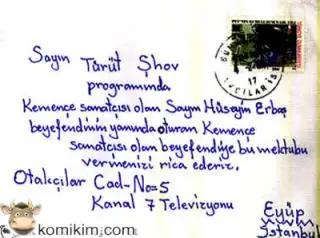 Sayın Türüt Şhov
programında
Kemence sanatcısı olan Sayın Hüseyin Erbaş
beyefendinin yanında oturan Kemence
sanatcısı olan beyefendiye bu mektubu
vermenizi rica ederiz.
Otakçılar Cad-No=5
Kanal 7 Televizyonu
Eyüp
İstanbul
17
komikim.com